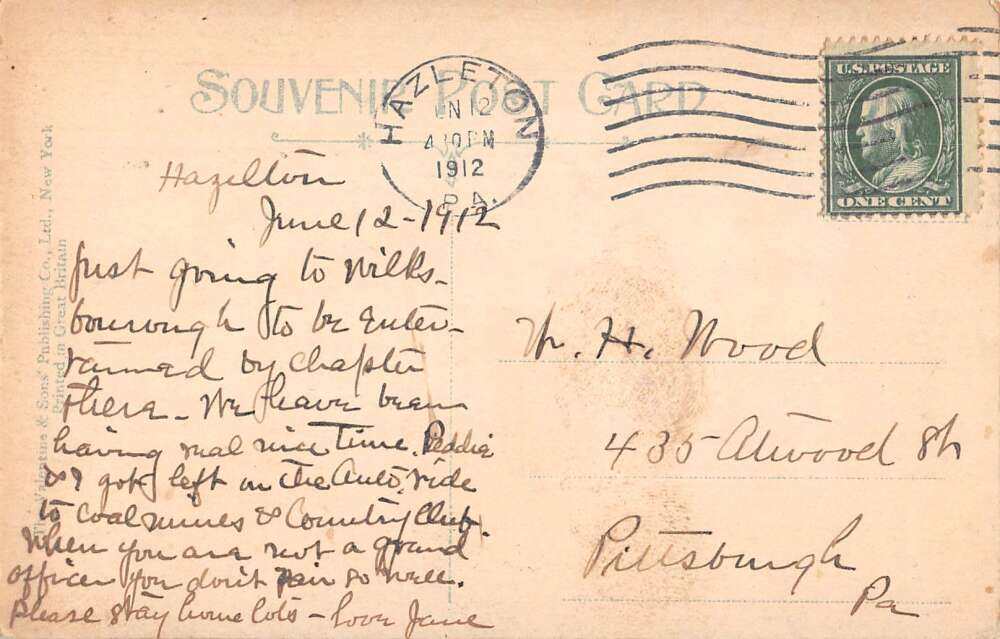 SOUVENIR POST CARD
HAZLETON
JUN 12
4 30 PM
1912
PA.
U.S. POSTAGE
ONE CENT
The Valentine & Sons' Publishing Co., Ltd., New York
Printed in Great Britain
Hazelton
June 12 - 1912
Just going to Wilks-
bourough to be enter-
tained by chapter
there - We have been
having real nice time. Peddie
& I got left on the Auto ride
to coal mines & Country Club.
When you are not a grand
officer you don't fair so well.
Please stay home lots - love Jane
W. H. Wood
435 Atwood St
Pittsburgh
Pa